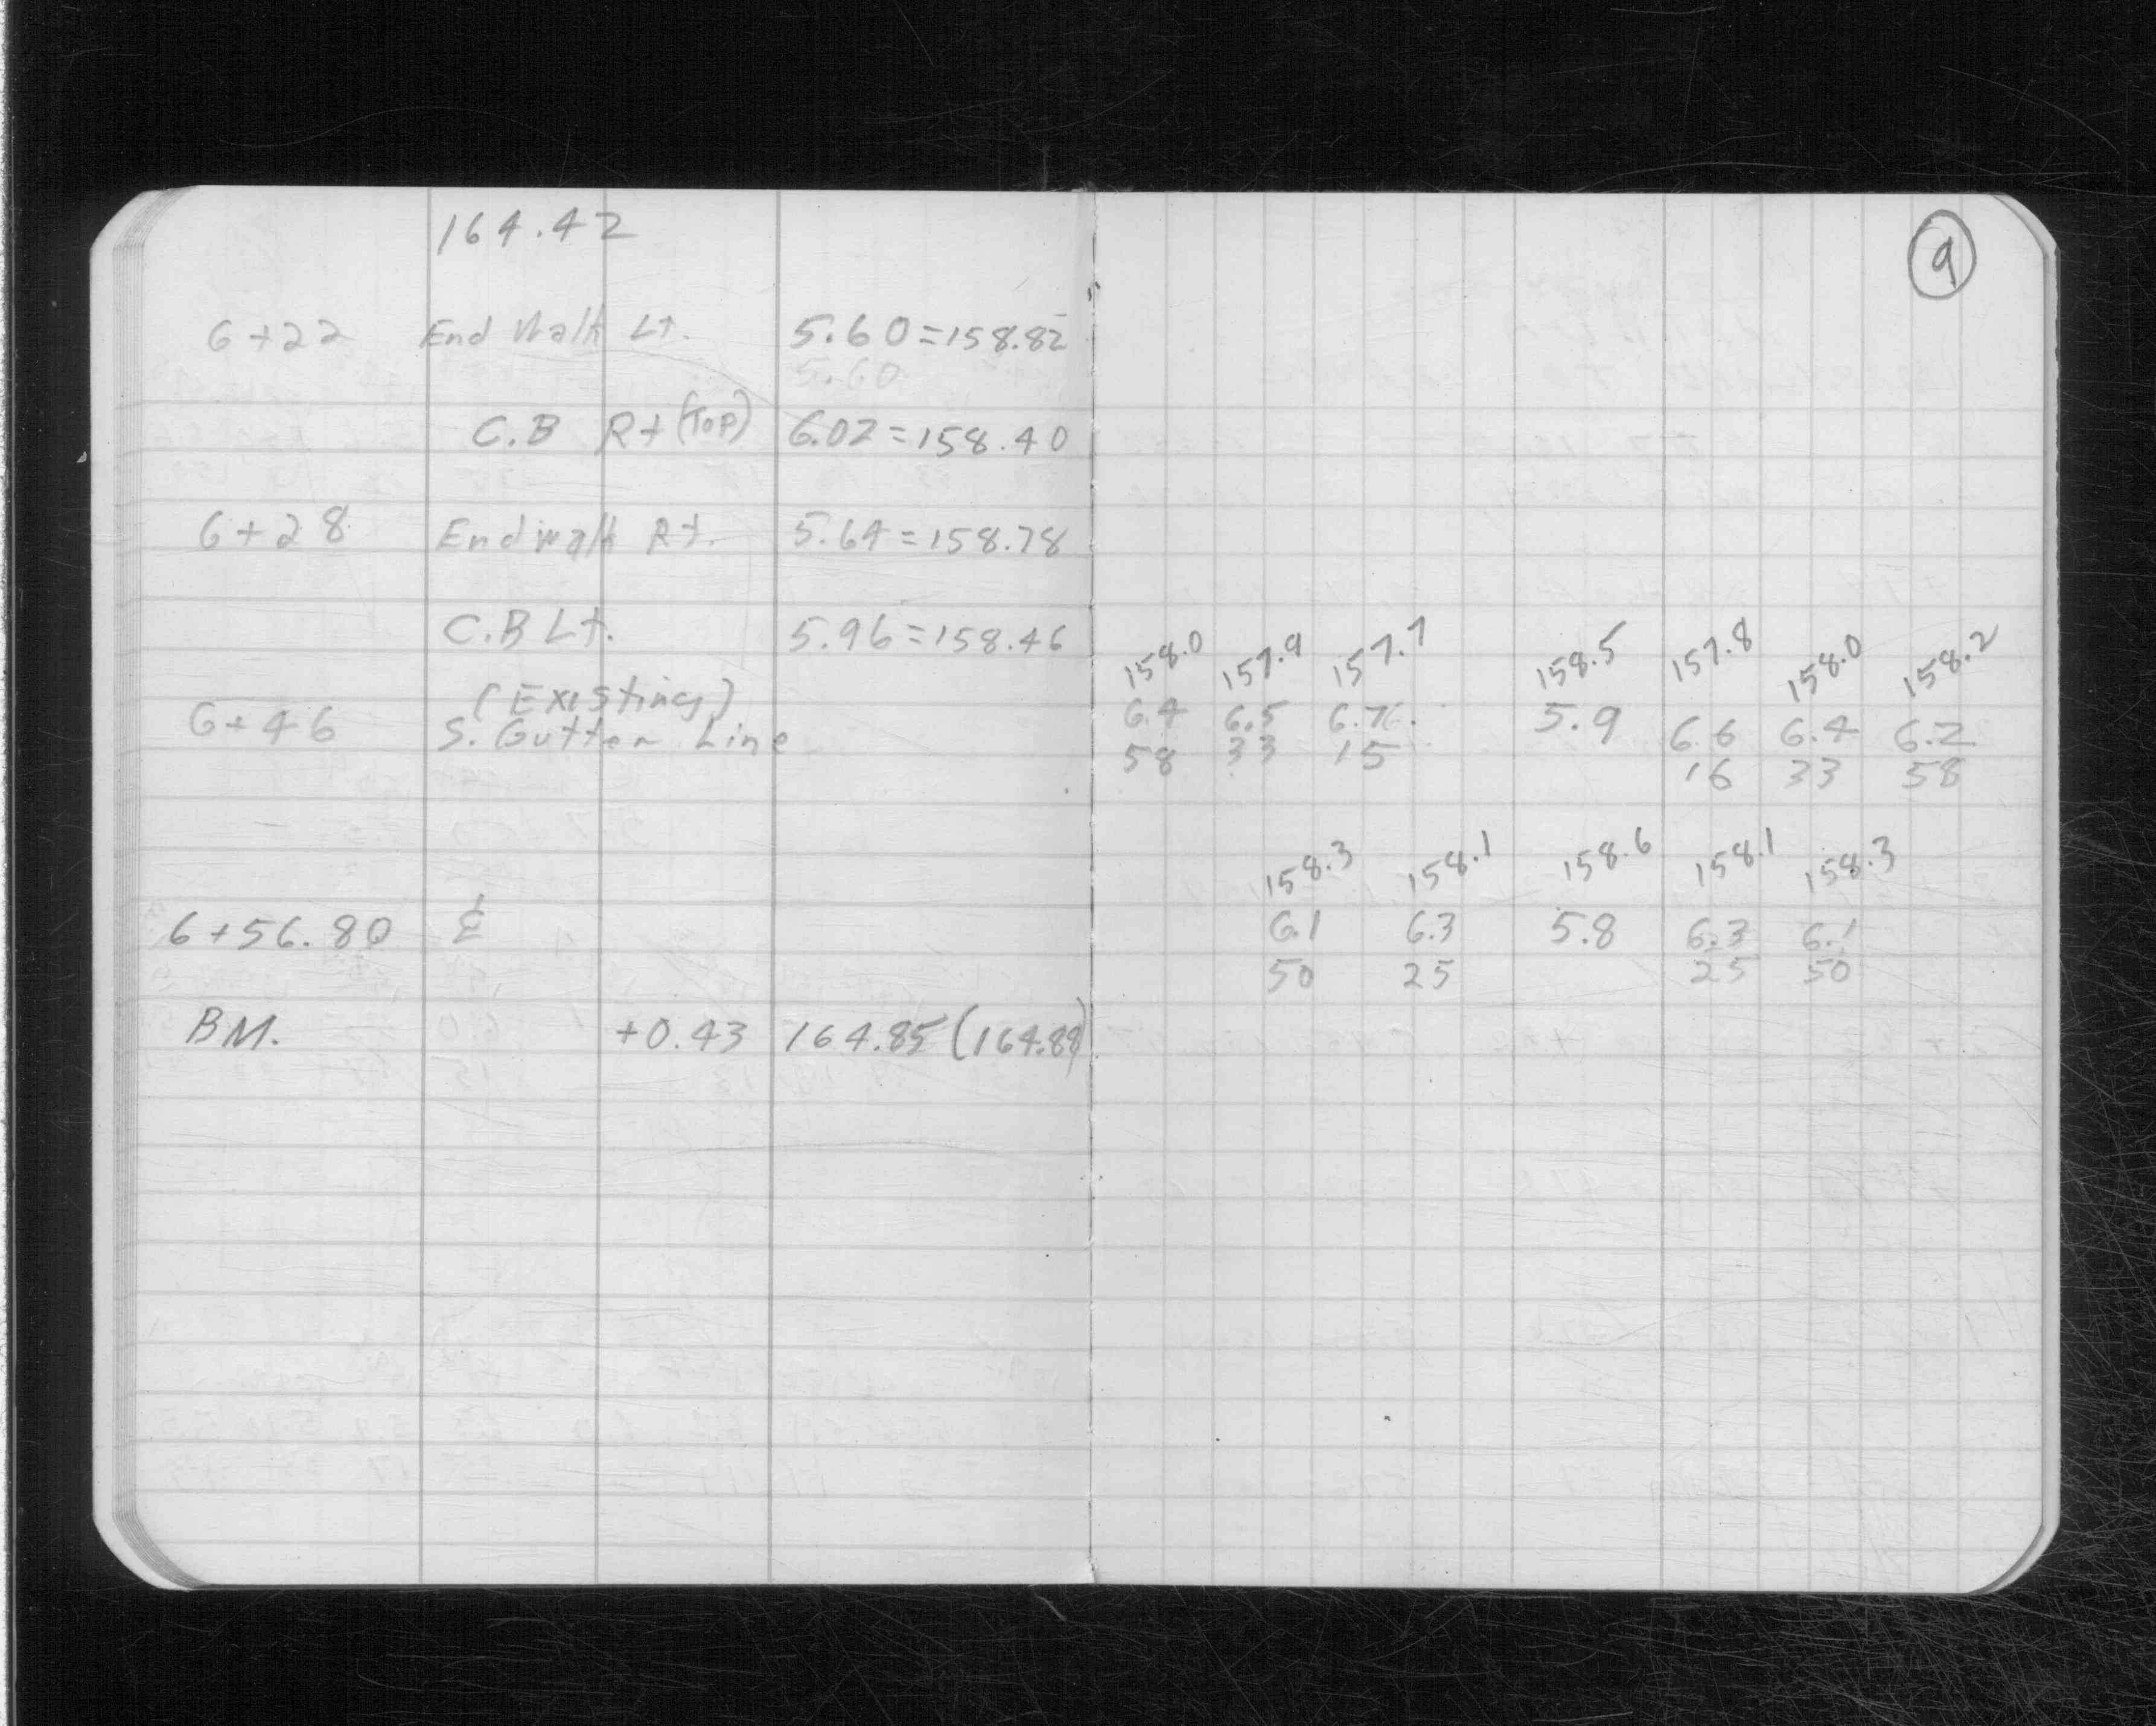 164.42
9
6+22 End Walk Lt. 5.60=158.82
5.60
C.B Rt (Top) 6.02=158.40
6+28 End walk Rt. 5.64=158.78
C.B Lt. 5.96=158.46
158.0 157.9 157.7 158.5 157.8 158.0 158.2
(Existing)
6+46 S. Gutter Line
6.4 6.5 6.7 5.9 6.6 6.4 6.2
58 33 15 16 33 58
158.3 158.1 158.6 158.1 158.3
6+56.80 ℄ 6.1 6.3 5.8 6.3 6.1
50 25 25 50
BM. +0.43 164.85 (164.88)